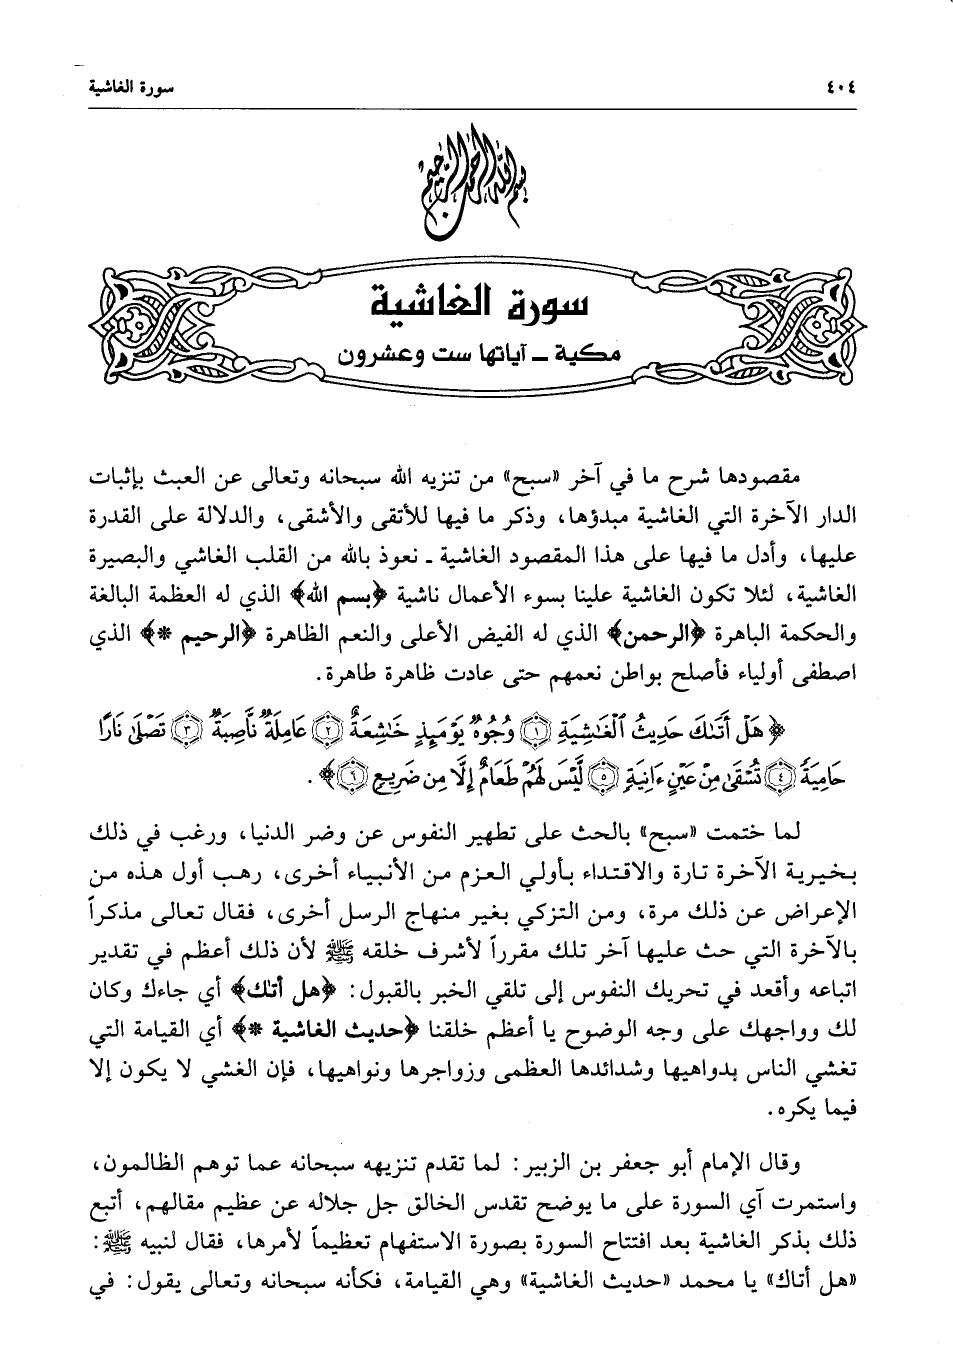 ٤٠٤ سورة الغاشية
بسم الله الرحمن الرحيم
سورة الغاشية
مكية ــ آياتها ست وعشرون
مقصودها شرح ما في آخر «سبح» من تنزيه الله سبحانه وتعالى عن العبث بإثبات
الدار الآخرة التي الغاشية مبدؤها، وذكر ما فيها للأتقى والأشقى، والدلالة على القدرة
عليها، وأدل ما فيها على هذا المقصود الغاشية ـ نعوذ بالله من القلب الغاشي والبصيرة
الغاشية، لئلا تكون الغاشية علينا بسوء الأعمال ناشية ﴿بسم الله﴾ الذي له العظمة البالغة
والحكمة الباهرة ﴿الرحمن﴾ الذي له الفيض الأعلى والنعم الظاهرة ﴿الرحيم *﴾ الذي
اصطفى أولياء فأصلح بواطن نعمهم حتى عادت ظاهرة طاهرة.
﴿هَلْ أَتَىٰكَ حَدِيثُ ٱلْغَٰشِيَةِ ۝١ وُجُوهٌ يَوْمَئِذٍ خَٰشِعَةٌ ۝٢ عَامِلَةٌ نَّاصِبَةٌ ۝٣ تَصْلَىٰ نَارًا
حَامِيَةً ۝٤ تُسْقَىٰ مِنْ عَيْنٍ ءَانِيَةٍ ۝٥ لَّيْسَ لَهُمْ طَعَامٌ إِلَّا مِن ضَرِيعٍ ۝٦﴾.
لما ختمت «سبح» بالحث على تطهير النفوس عن وضر الدنيا، ورغب في ذلك
بخيرية الآخرة تارة والاقتداء بأولي العزم من الأنبياء أخرى، رهب أول هذه من
الإعراض عن ذلك مرة، ومن التزكي بغير منهاج الرسل أخرى، فقال تعالى مذكراً
بالآخرة التي حث عليها آخر تلك مقرراً لأشرف خلقه ﷺ لأن ذلك أعظم في تقدير
اتباعه وأقعد في تحريك النفوس إلى تلقي الخبر بالقبول: ﴿هل أتٰك﴾ أي جاءك وكان
لك وواجهك على وجه الوضوح يا أعظم خلقنا ﴿حديث الغاشية *﴾ أي القيامة التي
تغشي الناس بدواهيها وشدائدها العظمى وزواجرها ونواهيها، فإن الغشي لا يكون إلا
فيما يكره.
وقال الإمام أبو جعفر بن الزبير: لما تقدم تنزيهه سبحانه عما توهم الظالمون،
واستمرت آي السورة على ما يوضح تقدس الخالق جل جلاله عن عظيم مقالهم، أتبع
ذلك بذكر الغاشية بعد افتتاح السورة بصورة الاستفهام تعظيماً لأمرها، فقال لنبيه ﷺ:
«هل أتاك» يا محمد «حديث الغاشية» وهي القيامة، فكأنه سبحانه وتعالى يقول: في